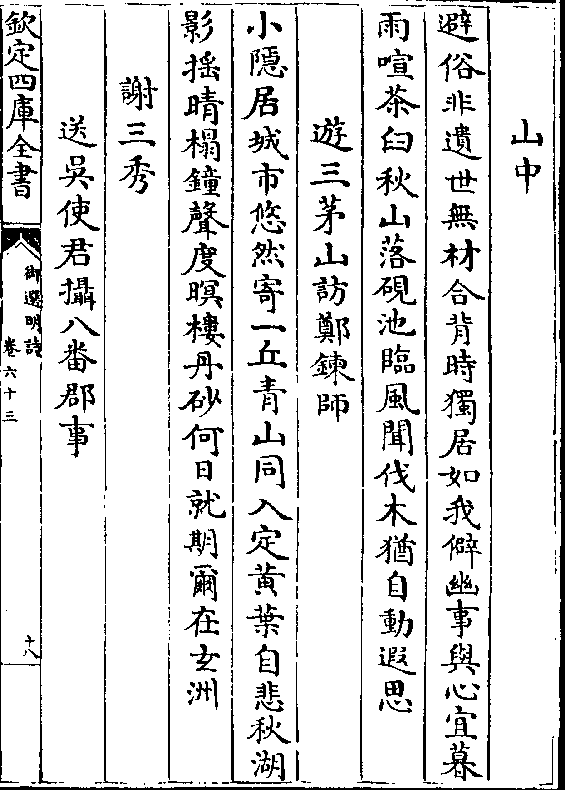 山中
避俗非遺世無材合背時獨居如我僻幽事與心宜暮
雨喧茶臼秋山落硯池臨風聞伐木猶自動遐思
遊三茅山訪鄭鍊師
小隱居城市悠然寄一丘青山同入定黄葉自悲秋湖
影揺晴榻鐘聲度暝樓丹砂何日就期爾在玄洲
謝三秀
送吳使君攝八番郡事
欽定四庫全書
御選明詩
卷六十三
十八